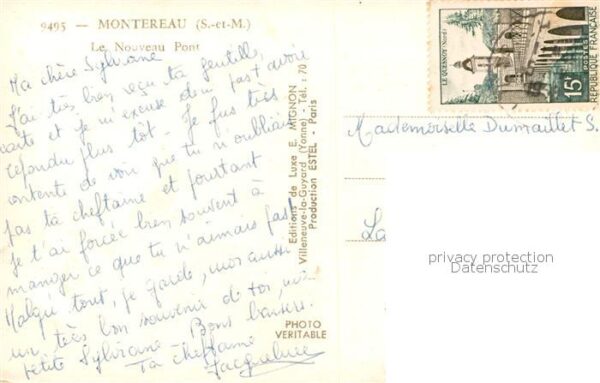 9495 — MONTEREAU (S.-et-M.)
Le Nouveau Pont
Ma chère Sylviane
J'ai très bien reçu ta gentille
carte et je m'excuse de ne pas t'avoir
répondu plus tôt. Je fus très
contente de voir que tu n'oubliais
pas ta cheftaine et pourtant
je t'ai forcée bien souvent à
manger ce que tu n'aimais pas.
Malgré tout, je garde, moi aussi
un très bon souvenir de toi, ma
petite Sylviane. Bons baisers.
Ta cheftaine
Jacqueline
Editions de Luxe E. MIGNON
Villeneuve-la-Guyard (Yonne) - Tél. : 70
Production ESTEL - Paris
PHOTO
VERITABLE
LE QUESNOY (Nord)
15F
POSTES
REPUBLIQUE FRANÇAISE
Mademoiselle Dumaillet S.
La
privacy protection
Datenschutz